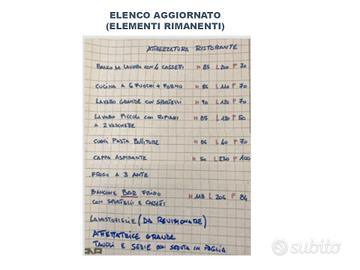 ELENCO AGGIORNATO
(ELEMENTI RIMANENTI)
ATTREZZATURA RISTORANTE
BANCO DA LAVORO CON 4 CASSETTI H 85 L 200 P 70
CUCINA A 6 FUOCHI + FORNO H 85 L 110 P 70
LAVABO GRANDE CON SPORTELLI H 90 L 120 P 70
LAVABO PICCOLO CON RIPIANI H 85 L 120 P 50
A 2 VASCHETTE
CUOCI PASTA BOLLITORE H 85 L 60 P 70
CAPPA ASPIRANTE H 50 L 230 P 100
FRIGO A 3 ANTE
BANCONE BAR FRIGO H 113 L 205 P 84
CON SPORTELLI E CASSETTI
LAVASTOVIGLIE (DA REVISIONARE)
AFFETTATRICE GRANDE
TAVOLI E SEDIE CON SEDUTA IN PAGLIA
subito